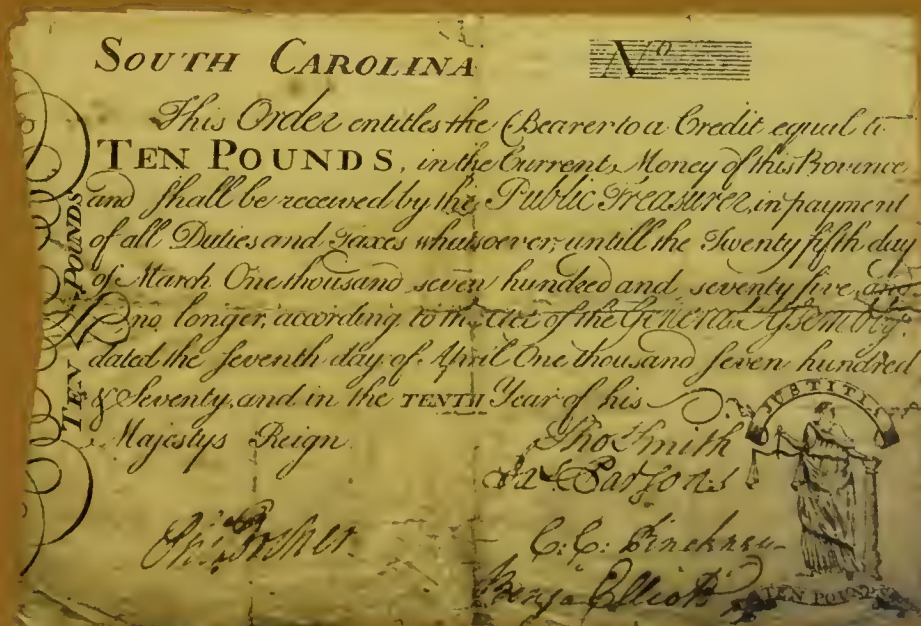 SOUTH CAROLINA
No
This Order entitles the Bearer to a Credit equal to
TEN POUNDS, in the Current Money of this Province
and shall be received by the Public Treasurer, in payment
of all Duties and Taxes whatsoever, untill the Twenty fifth day
of March One thousand seven hundred and seventy five, and
no longer, according to the Act of the General Assembly
dated the seventh day of April One thousand seven hundred
& Seventy, and in the TENTH Year of his
Majestys Reign
TEN POUNDS
Tho Smith
Ja Parsons
C. C. Pinckney
Benja Elliott
JUSTITI
TEN POUNDS